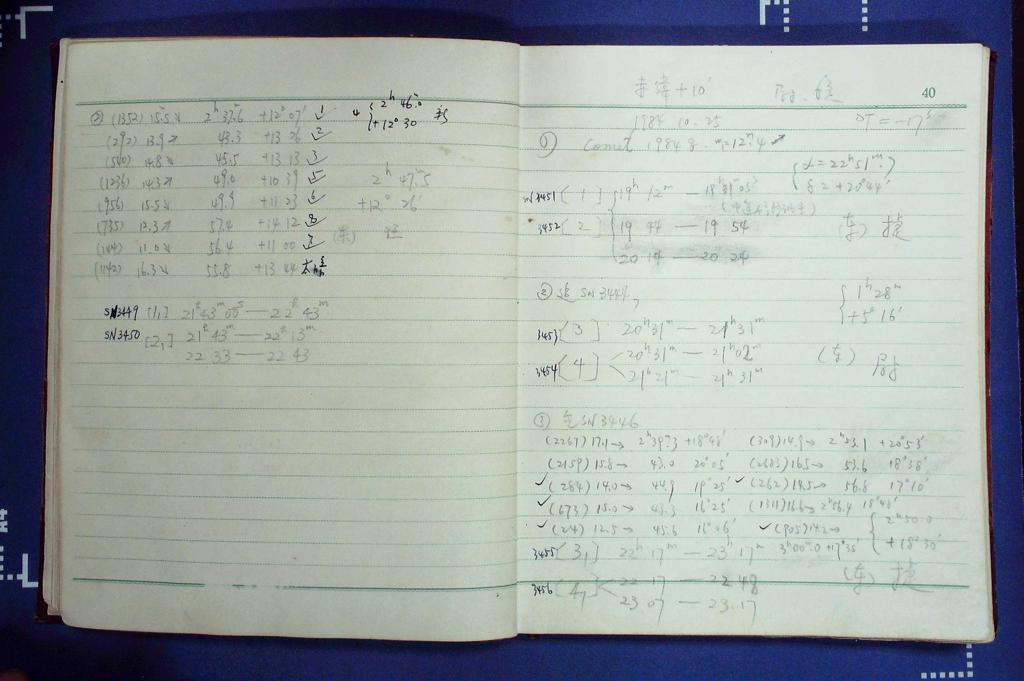 ② (1352) 15.5↘ 2ʰ 37.6ᵐ +12° 07′ ✓ 1
4 { 2ʰ 46.ᵐ0
+12° 30 新
(292) 13.9↗ 43.3 +13 26 ✓ 2
(540) 14.8↘ 45.5 +13 13 ✓ 3
(1236) 14.3↗ 49.0 +10 39 ✓ 5
(956) 15.5↘ 49.9 +11 23 ✓ 6
(735) 12.3↗ 57.4 +14 12 ✓ 8
(144) 11.0↘ 56.4 +11 00 ✓ 7
(1142) 16.3↘ 55.8 +13 44
2ʰ 47.ᵐ5
+12° 26′
(东)
SN3449 [1₁] 21ʰ43ᵐ00ˢ — 22ʰ 43ᵐ
SN3450 [2₁] 21ʰ 43ᵐ — 22ʰ 13ᵐ
22 33 — 22 43
赤纬 +10′
40
1984 10. 25
δT = -17ˢ
① Comet 1984 m=12.ᵐ4
{ α = 22ʰ 51ᵐ
δ = +20° 44′
SN3451 [1] { 19ʰ 12ᵐ —
3452 [2] 19 44 — 19 54
20 14 — 20 24
(东) 捷
② 追 SN3444,
{ 1ʰ 28ᵐ
+5° 16′
3453 [3] 20ʰ 31ᵐ — 21ʰ 31ᵐ
3454 [4] < 20ʰ31ᵐ — 21ʰ02ᵐ
21ʰ 21ᵐ — 21ʰ 31ᵐ
(东)
③ SN3446
(2267) 17.1→ 2ʰ39.ᵐ3 +18°48′ (309) 14.9→ 2ʰ53.1 +20°53′
(2159) 15.8→ 43.0 20°05′ (2683) 16.5→ 53.6 18°38′
✓(284) 14.0→ 44.9 19°25′ ✓(262) 14.5→ 56.8 17°10′
✓(673) 15.0→ 43.3 16°25′ (1311) 16.6→ 2ʰ56.4 18°43′
✓(24) 12.5→ 45.6 16°06′ ✓(905) 14.2→
{ 2ʰ50.ᵐ0
+18°30′
3ʰ00.ᵐ0 +17°35′
3455 [3₁] 22ʰ 17ᵐ — 23ʰ 17ᵐ
3456 [4₁] < 22 17 — 22 48
23 07 — 23 17
(东) 捷